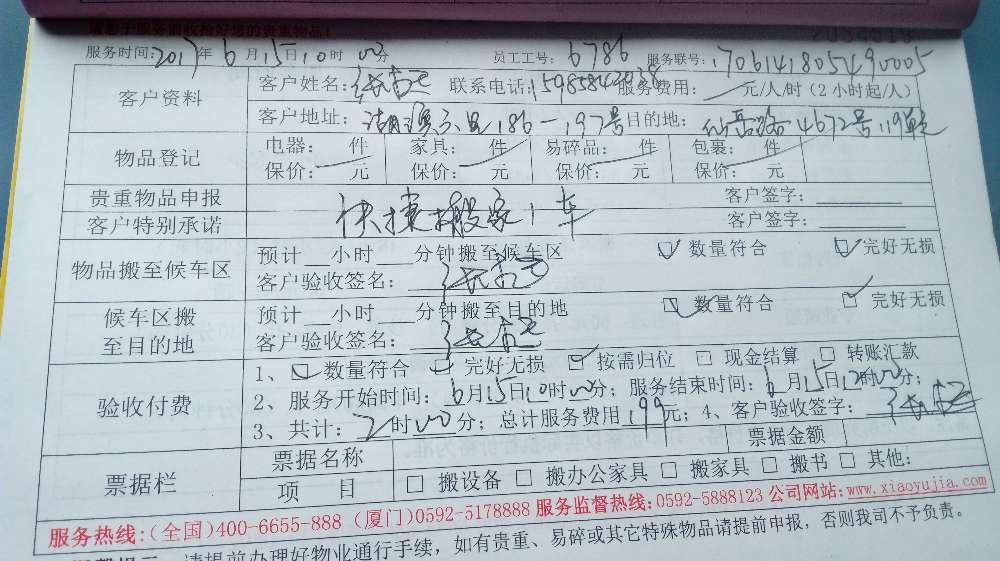 服务时间:2017年6月15日10时00分 员工工号:6786 服务联号:170614180549 0005
客户资料 客户姓名: 联系电话: 服务费用: 元/人/时（2小时起/人）
客户地址: 186-197号 目的地: 4672号119单元
物品登记 电器: 件 家具: 件 易碎品: 件 包裹: 件
保价: 元 保价: 元 保价: 元 保价: 元
贵重物品申报 客户签字:
客户特别承诺 快捷搬家1车 客户签字:
物品搬至候车区 预计__小时____分钟搬至候车区 ☑数量符合 ☑完好无损
客户验收签名:
候车区搬至目的地 预计__小时____分钟搬至目的地 ☑数量符合 ☑完好无损
客户验收签名:
验收付费 1、☑数量符合 ☑完好无损 ☑按需归位 □现金结算 □转账汇款
2、服务开始时间:6月15日10时00分; 服务结束时间:6月15日12时00分;
3、共计:2时00分; 总计服务费用199元; 4、客户验收签字:
票据栏 票据名称 票据金额
项目 □搬设备 □搬办公家具 □搬家具 □搬书 □其他:
服务热线:(全国)400-6655-888 (厦门)0592-5178888 服务监督热线:0592-5888123 公司网站:www.xiaoyujia.com
请提前办理好物业通行手续，如有贵重、易碎或其它特殊物品请提前申报，否则我司不予负责。